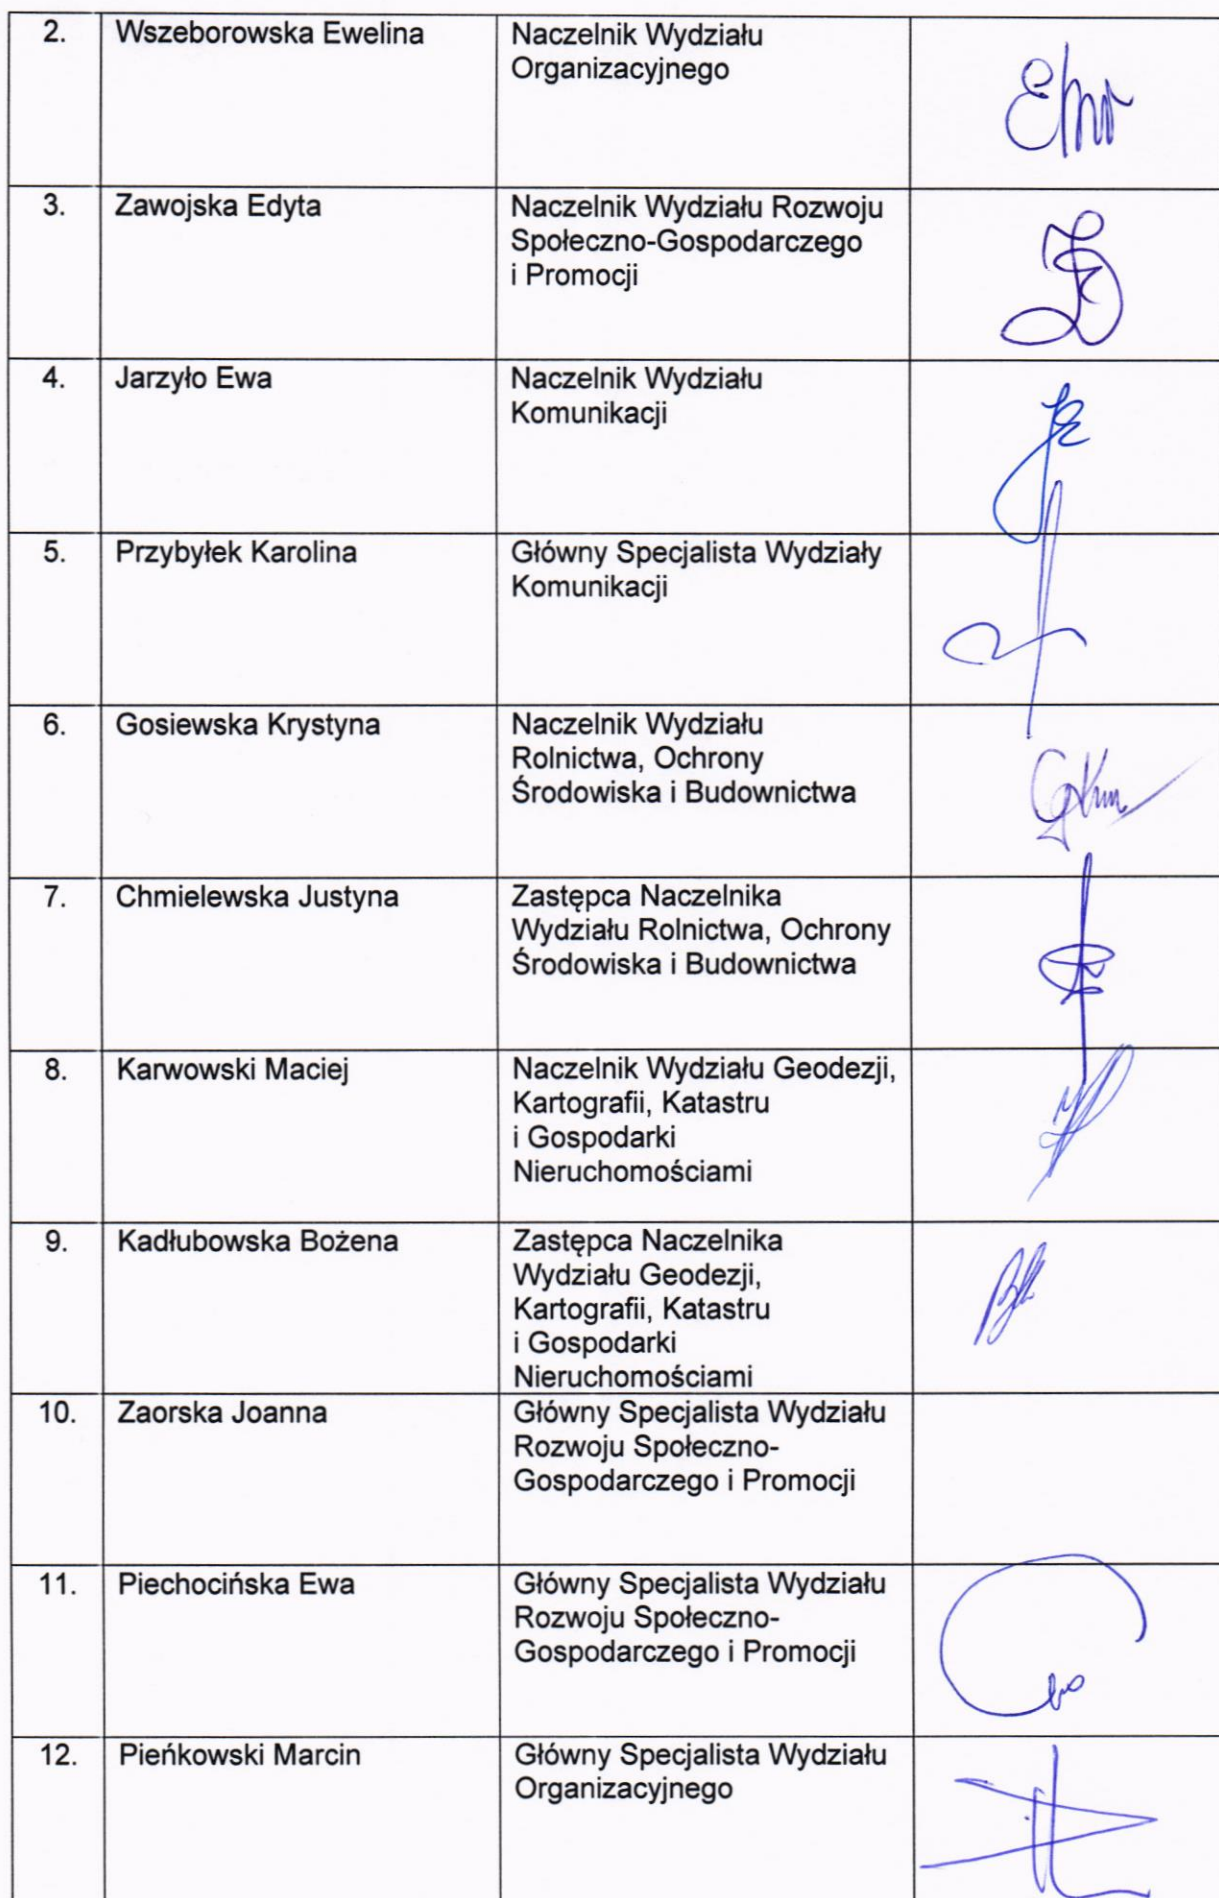 2. Wszeborowska Ewelina Naczelnik Wydziału
Organizacyjnego
3. Zawojska Edyta Naczelnik Wydziału Rozwoju
Społeczno-Gospodarczego
i Promocji
4. Jarzyło Ewa Naczelnik Wydziału
Komunikacji
5. Przybyłek Karolina Główny Specjalista Wydziały
Komunikacji
6. Gosiewska Krystyna Naczelnik Wydziału
Rolnictwa, Ochrony
Środowiska i Budownictwa
7. Chmielewska Justyna Zastępca Naczelnika
Wydziału Rolnictwa, Ochrony
Środowiska i Budownictwa
8. Karwowski Maciej Naczelnik Wydziału Geodezji,
Kartografii, Katastru
i Gospodarki
Nieruchomościami
9. Kadłubowska Bożena Zastępca Naczelnika
Wydziału Geodezji,
Kartografii, Katastru
i Gospodarki
Nieruchomościami
10. Zaorska Joanna Główny Specjalista Wydziału
Rozwoju Społeczno-
Gospodarczego i Promocji
11. Piechocińska Ewa Główny Specjalista Wydziału
Rozwoju Społeczno-
Gospodarczego i Promocji
12. Pieńkowski Marcin Główny Specjalista Wydziału
Organizacyjnego